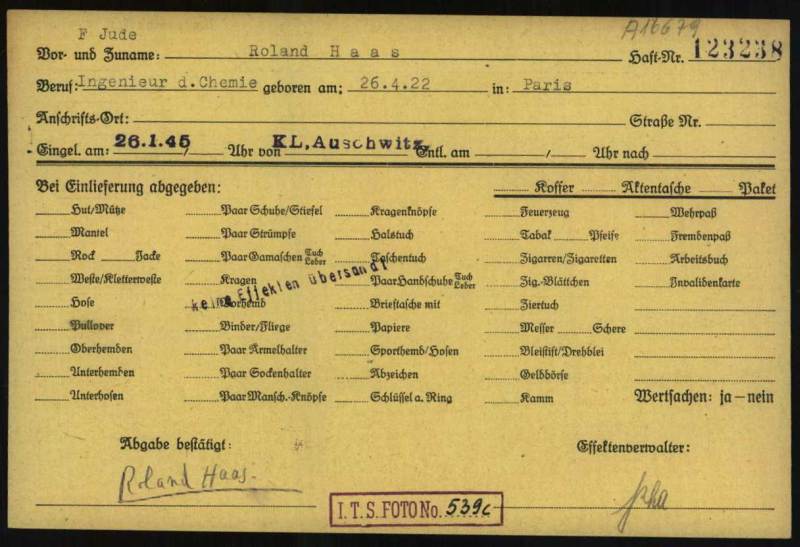 F Jude A16679
Vor- und Zuname: Roland Haas Haft-Nr. 123238
Beruf: Ingenieur d.Chemie geboren am: 26.4.22 in: Paris
Anschrifts-Ort: Straße Nr.
Eingel. am: 26.1.45 Uhr von KL, Auschwitz Entl. am / Uhr nach
Bei Einlieferung abgegeben: Koffer Aktentasche Paket
Hut/Mütze Paar Schuhe/Stiefel Kragenknöpfe Feuerzeug Wehrpaß
Mantel Paar Strümpfe Halstuch Tabak Pfeife Fremdenpaß
Rock Jacke Paar Gamaschen Tuch Leder Taschentuch Zigarren/Zigaretten Arbeitsbuch
Weste/Kletterweste Kragen Paar Handschuhe Tuch Leder Zig.-Blättchen Invalidenkarte
keine Effekten übersandt
Hose Vorhemd Brieftasche mit Ziertuch
Pullover Binder/Fliege Papiere Messer Schere
Oberhemden Paar Ärmelhalter Sporthemd/Hosen Bleistift/Drehblei
Unterhemden Paar Sockenhalter Abzeichen Geldbörse
Unterhosen Paar Mansch.-Knöpfe Schlüssel a. Ring Kamm Wertsachen: ja – nein
Abgabe bestätigt: Effektenverwalter:
Roland Haas.
I.T.S. FOTO No. 539c